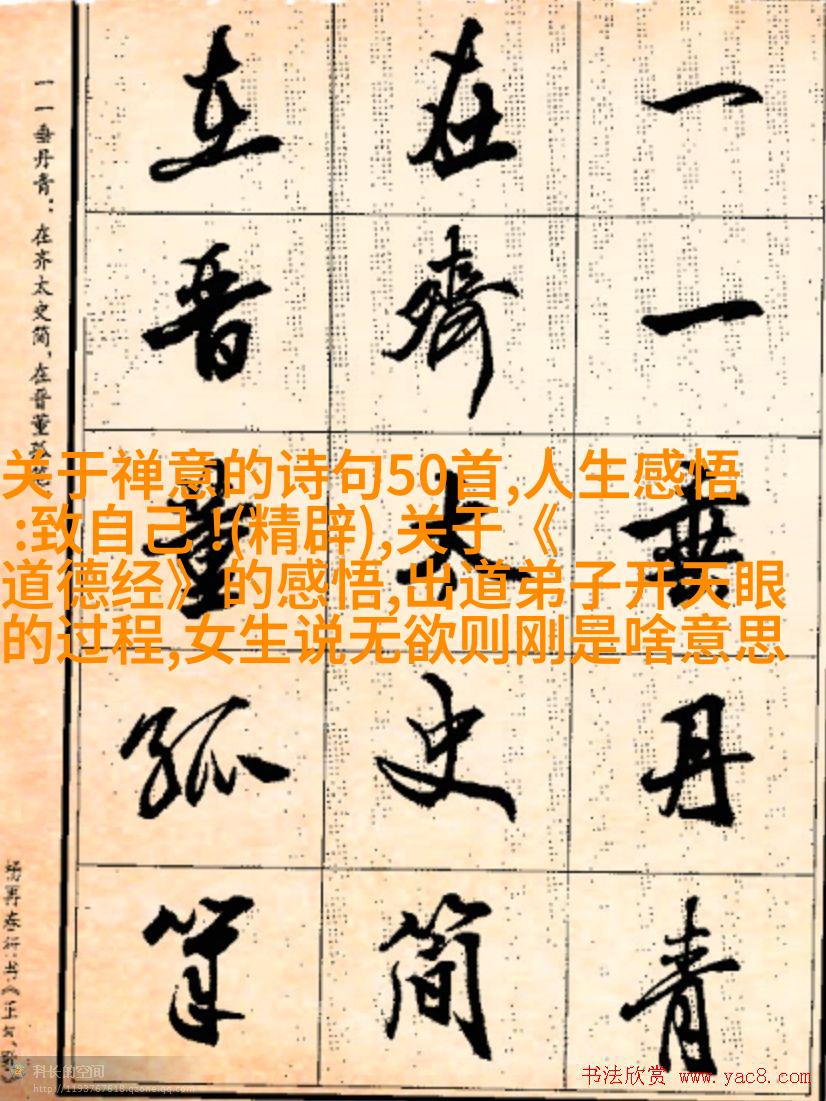 一一垂丹青
在齐太史简
在晋董孤笔
一一垂丹青：在齐太史简，在晋董孤笔
关于禅意的诗句50首,人生感悟
:致自己!(精辟),关于《
道德经》的感悟,出道弟子开天眼
的过程,女生说无欲则刚是啥意思
科长的空间
http://1193767618.qzone.qq.com
书法欣赏 www.yac8.com